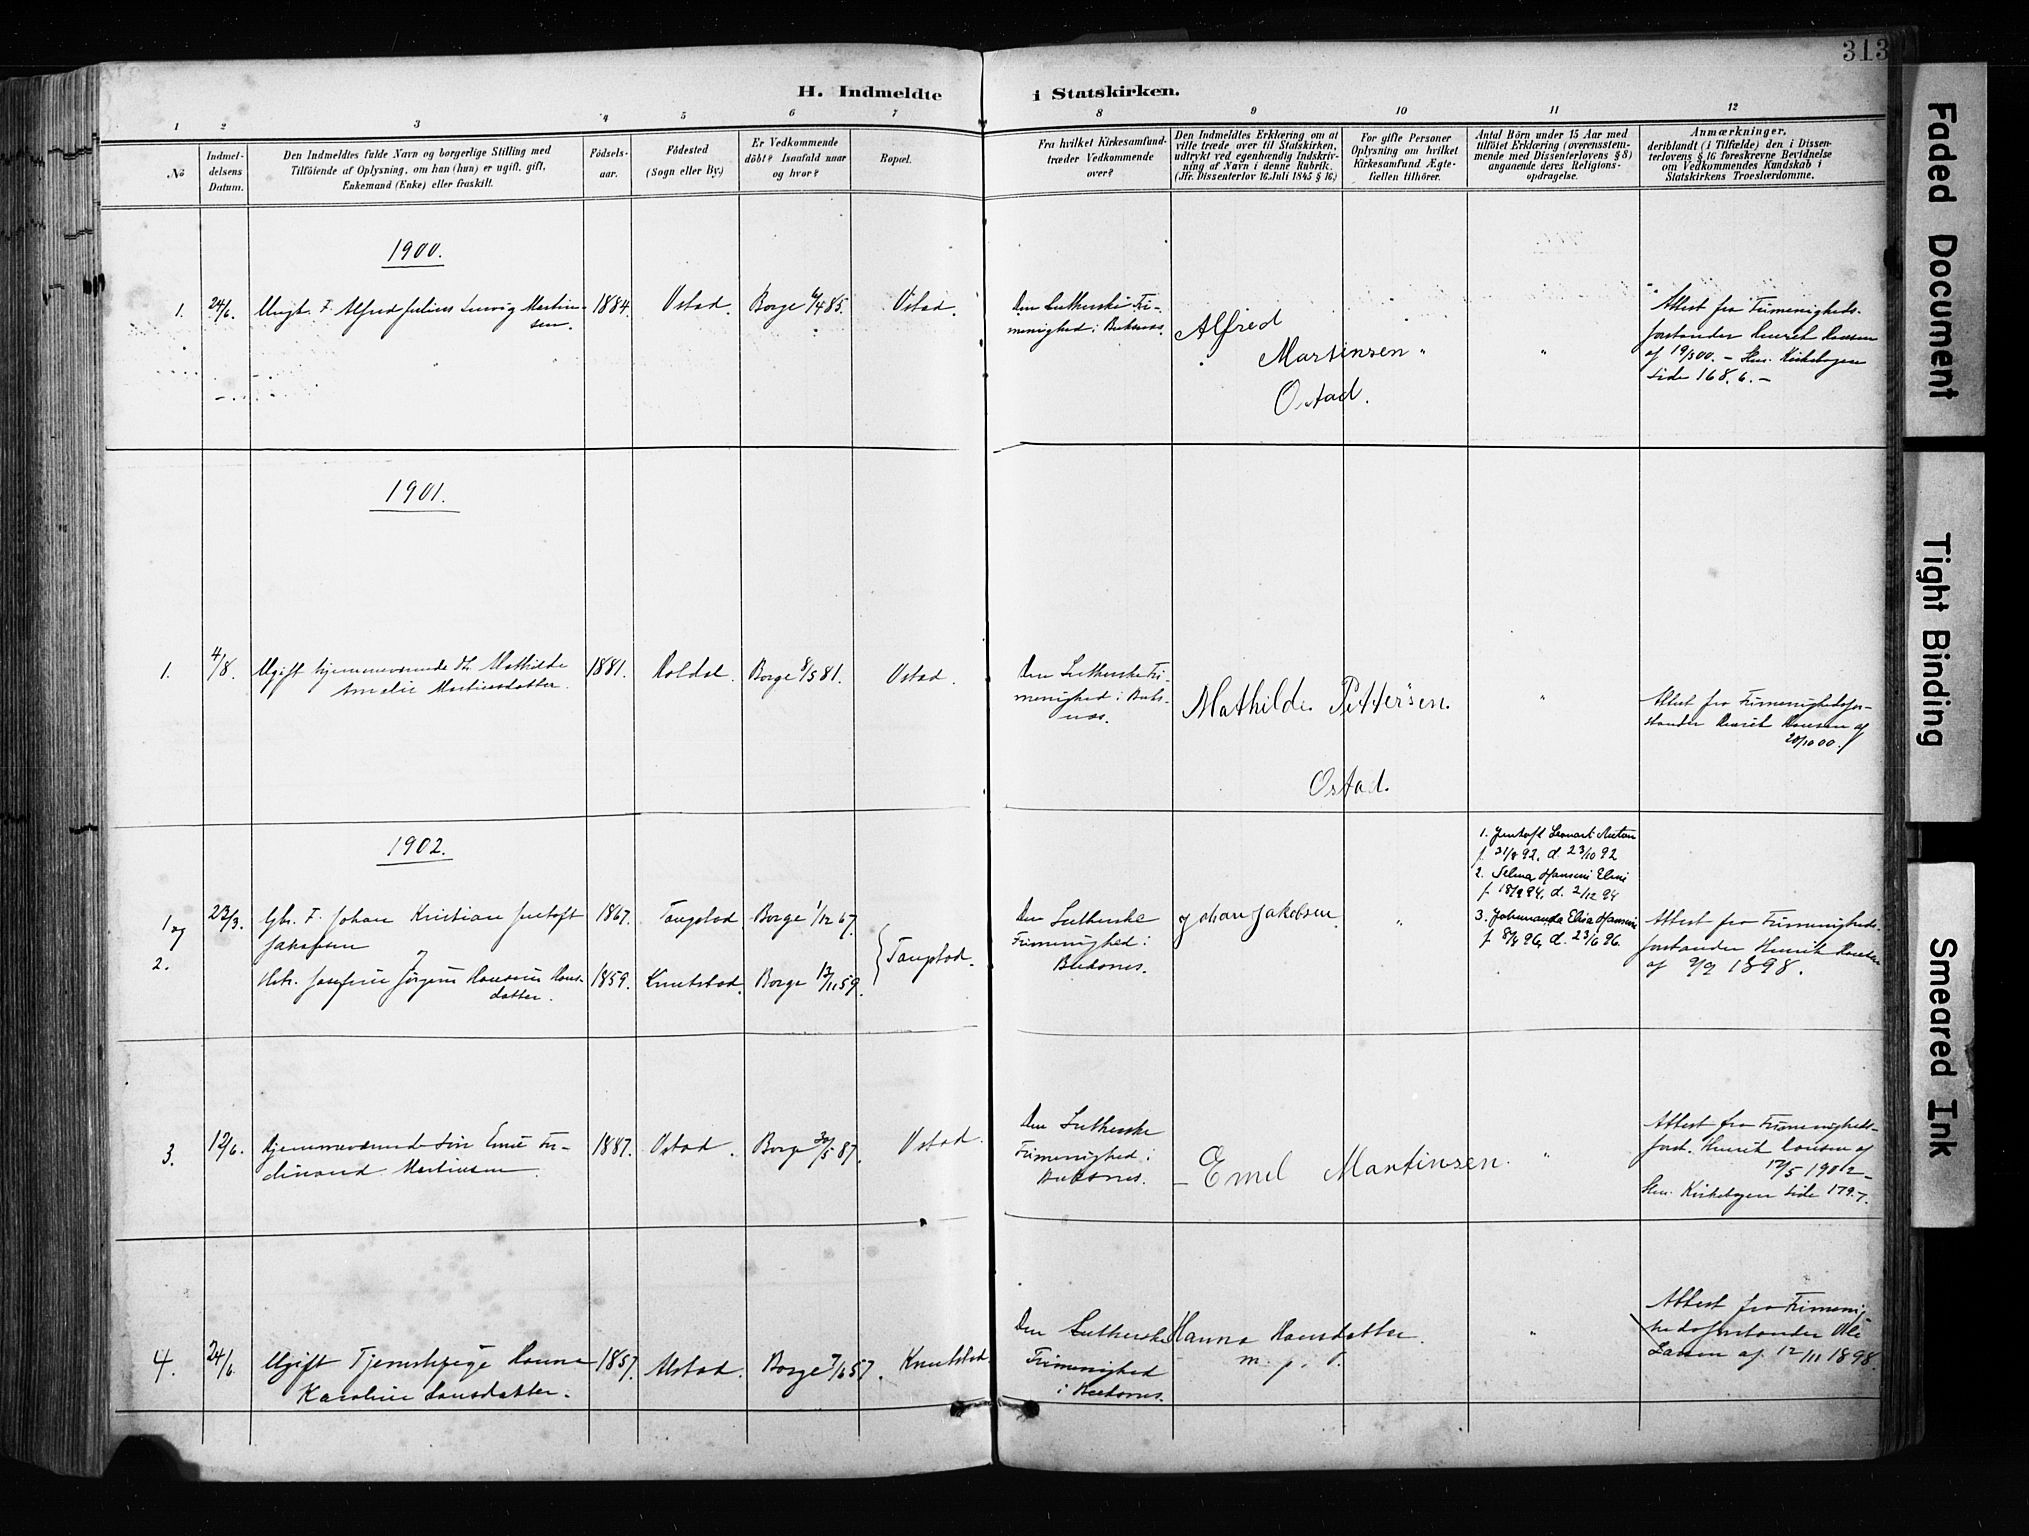 313
H. Indmeldte i Statskirken.
1 2 3 4 5 6 7 8 9 10 11 12
No
Indmel-
delsens
Datum.
Den Indmeldtes fulde Navn og borgerlige Stilling med
Tilföiende af Oplysning, om han (hun) er ugift, gift,
Enkemand (Enke) eller fraskilt.
Födsels-
aar.
Födested
(Sogn eller By.)
Er Vedkommende
döbt? Isaafald naar
og hvor?
Bopæl.
Fra hvilket Kirkesamfund
træder Vedkommende
over?
Den Indmeldtes Erklæring om at
ville træde over til Statskirken,
udtrykt ved egenhændig Indskriv-
ning af Navn i denne Rubrik.
(Jfr. Dissenterlov 16. Juli 1845 § 16.)
For gifte Personer
Oplysning om hvilket
Kirkesamfund Ægte-
fællen tilhörer.
Antal Börn under 15 Aar med
tilföiet Erklæring (overensstem-
mende med Dissenterlovens § 8)
angaaende deres Religions-
opdragelse.
Anmærkninger,
deriblandt (i Tilfælde) den i Dissen-
terlovens § 16 foreskrevne Bevidnelse
om Vedkommendes Kundskab i
Statskirkens Troeslærdomme.
1900.
1. 24/6. Alfred Julius Martin-
sen. 1884. Ostad. Borge 6/4 85. Ostad.
Den Lutherske Fri-
menighed i Buksnes.
Alfred
Martinsen "
Ostad.
"
Attest fra Frimenigheds-
forstander Henrik Hansen
af 19/5 00. – Kirkebogen
Side 168. 6. –
1901.
1. 4/8. Ugift hjemmeværende Mathilde
Amalie Martinsdatter. 1881. Borge 8/5 81. Ostad.
Den Lutherske Fri-
menighed i Buks-
nes.
Mathilde Pettersen.
Ostad.
"
Attest fra Frimenighedsfor-
stander Henrik Hansen af
20/10 00.
1902.
1 og 2.
23/3. Gbr. F. Johan Kristian Jentoft
Jakobsen 1867. Tangstad. Borge 1/12 67.
Hst. Josefine Jørgine Hansine Hans-
datter. 1859. Knutstad. Borge 13/11 59.
Tangstad.
Den Lutherske
Frimenighed i
Buksnes.
Johan Jakobsen.
"
1. Jentoft Leonart Anton
f. 31/8 92, d. 23/10 92
2. Selma Hansine Eline
f. 18/9 94, d. 2/12 94
3. Johannanda Elisa Hansine
f. 8/4 96, d. 23/6 96.
Attest fra Frimenigheds-
forstander Henrik Hansen
af 9/9 1898.
3. 12/6. Hjemmeværende Søn Emil Fer-
dinand Martinsen. 1887. Ostad. Borge 30/5 87. Ostad.
Den Lutherske
Frimenighed i
Buksnes.
Emel Martinsen.
"
Attest fra Frimenigheds-
forst. Henrik Hansen af
12/5 1902 –
Kirkebogen Side 179. 7.
4. 24/6. Ugift Tjenestepige Hanna
Karoline Hansdatter. 1857. Alstad. Borge 7/6 57. Knutstad.
Den Lutherske
Frimenighed
i Buksnes.
Hanna Hansdatter.
m. p. .
"
Attest fra Frimenig-
hedsforstander Ole
Larsen af 12/11 1898.
Faded Document
Tight Binding
Smeared Ink